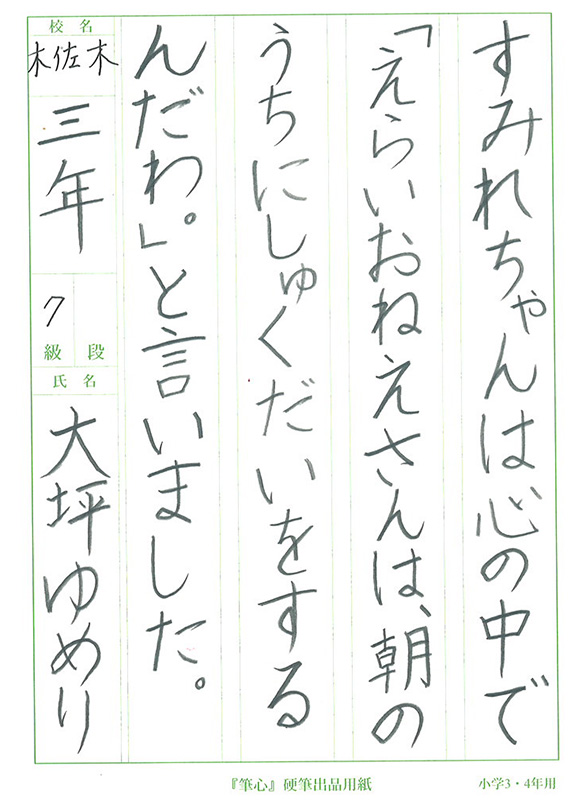 すみれちゃんは心の中で
「えらいおねえさんは、朝の
うちにしゅくだいをする
んだわ。」と言いました。
校名
木佐木
三年
7
級 段
氏名
大坪ゆめり
『筆心』硬筆出品用紙
小学3・4年用